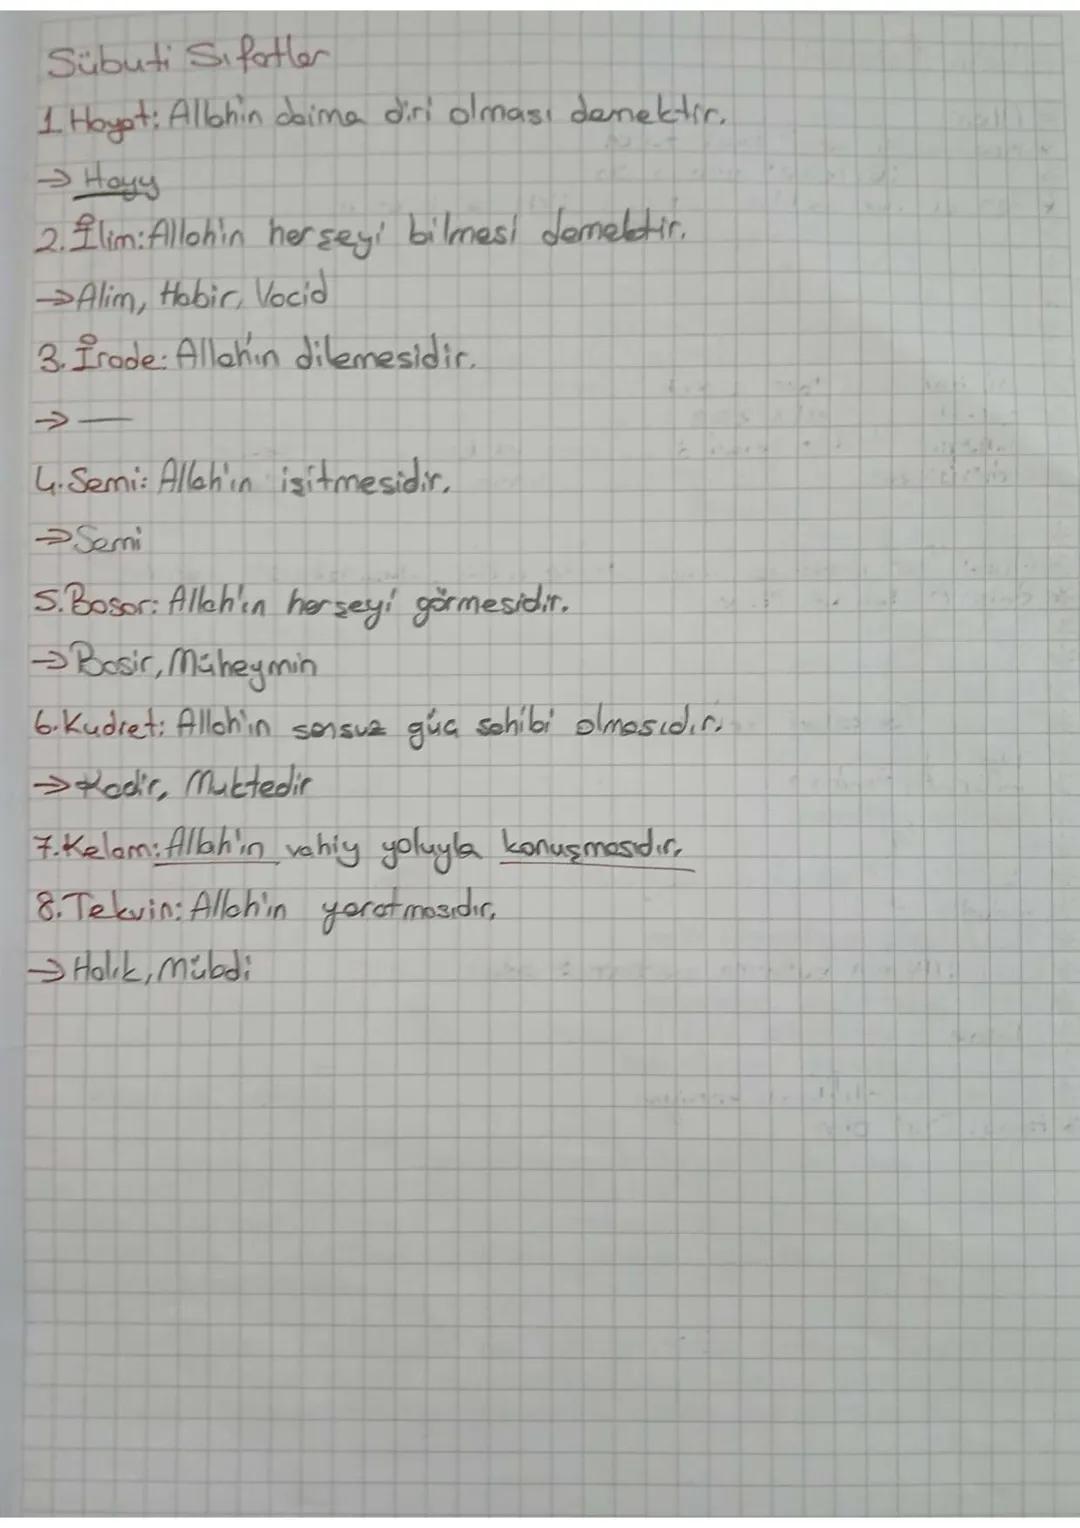 Sübuti Sıfatlar
1. Hayat: Allahın daima diri olması demektir.
→ Hayy
2. İlim: Allah'ın herşeyi bilmesi demektir.
→ Alim, Habir, Vacid
3. İrade: Allah'ın dilemesidir.
→ —
4. Semi: Allah'ın işitmesidir.
→ Semi
5. Basar: Allah'ın herşeyi görmesidir.
→ Basir, Müheymin
6. Kudret: Allah'ın sonsuz güç sahibi olmasıdır.
→ Kadir, Muktedir
7. Kelam: Allah'ın vahiy yoluyla konuşmasıdır.
8. Tekvin: Allah'ın yaratmasıdır.
→ Halık, Mübdi